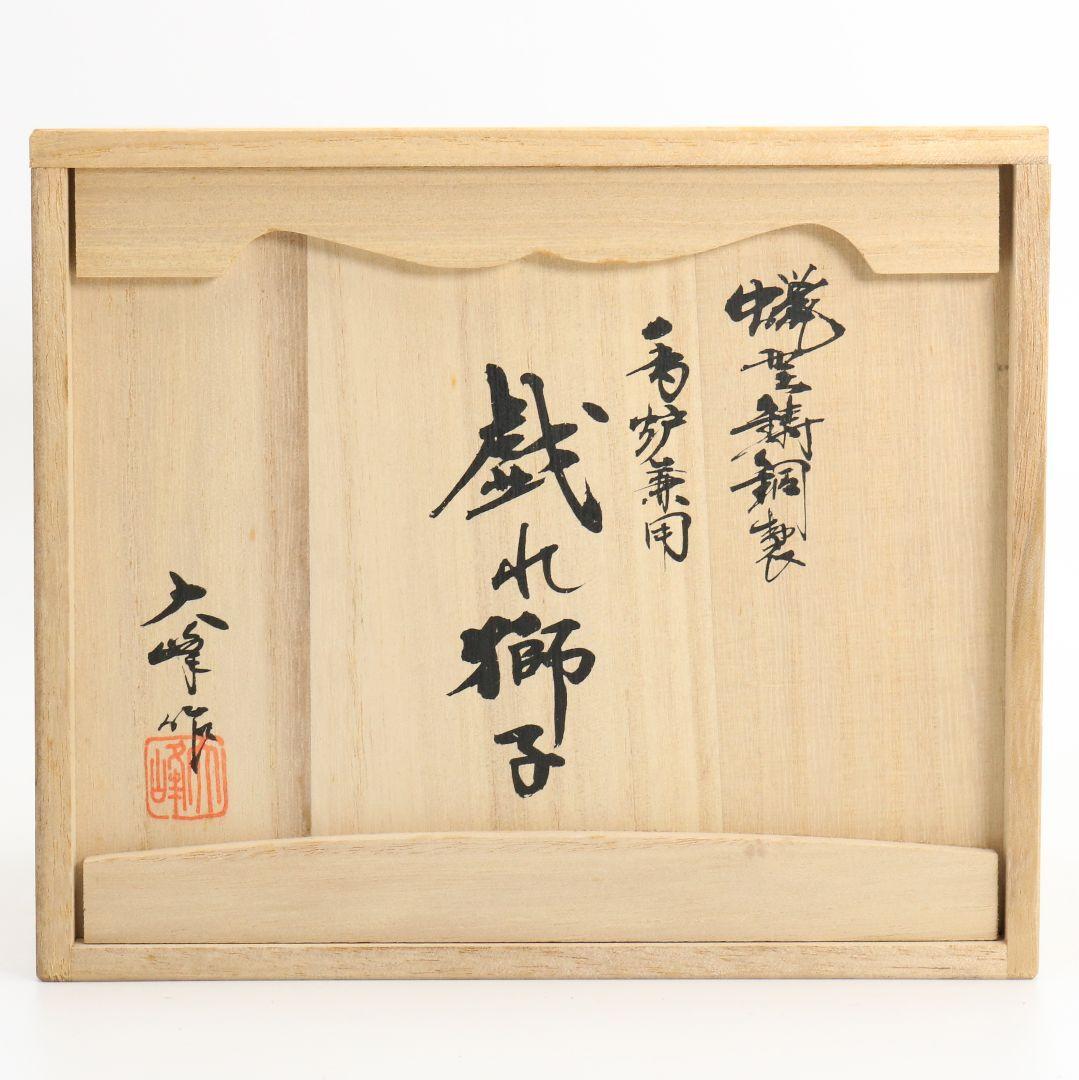 蠟型鋳銅製
香炉兼用
戯れ獅子
大峰作
大峰